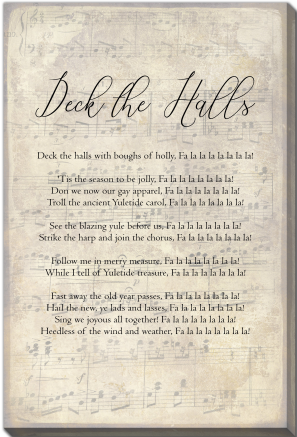 Deck the Halls
Deck the halls with boughs of holly, Fa la la la la la la la!
'Tis the season to be jolly, Fa la la la la la la!
Don we now our gay apparel, Fa la la la la la la!
Troll the ancient Yuletide carol, Fa la la la la la la!
See the blazing yule before us, Fa la la la la la la!
Strike the harp and join the chorus, Fa la la la la la la!
Follow me in merry measure, Fa la la la la la la!
While I tell of Yuletide treasure, Fa la la la la la la!
Fast away the old year passes, Fa la la la la la la!
Hail the new, ye lads and lasses, Fa la la la la la la!
Sing we joyous all together! Fa la la la la la la!
Heedless of the wind and weather, Fa la la la la la la la!